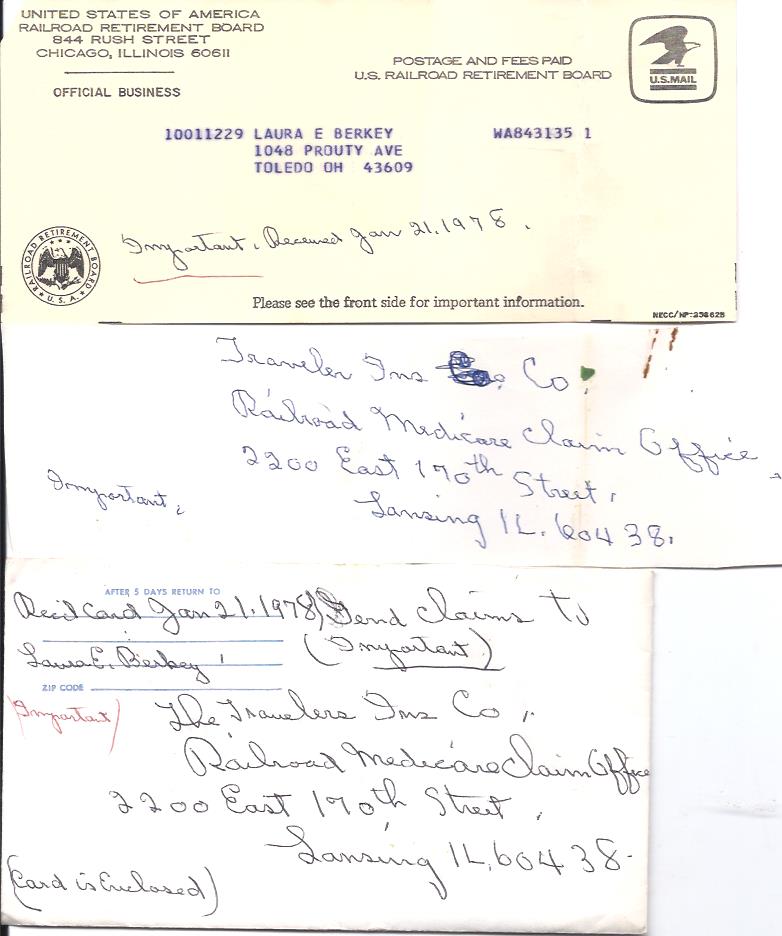 UNITED STATES OF AMERICA
RAILROAD RETIREMENT BOARD
844 RUSH STREET
CHICAGO, ILLINOIS 60611
OFFICIAL BUSINESS
POSTAGE AND FEES PAID
U.S. RAILROAD RETIREMENT BOARD
U.S.MAIL
10011229 LAURA E BERKEY WA843135 1
1048 PROUTY AVE
TOLEDO OH 43609
RAILROAD RETIREMENT BOARD
U.S.A.
Important. Received Jan 21, 1978.
Please see the front side for important information.
Traveler Ins Co
Railroad Medicare Claim Office
2200 East 170th Street,
Important,
Lansing IL. 60438.
AFTER 5 DAYS RETURN TO
Rec'd Card Jan 21, 1978) Send Claims to
(Important)
Laura E. Berkey
ZIP CODE
(Important)
The Travelers Ins Co,
Railroad Medicare Claim Office
2200 East 170th Street,
Lansing IL, 60438-
(Card is Enclosed)